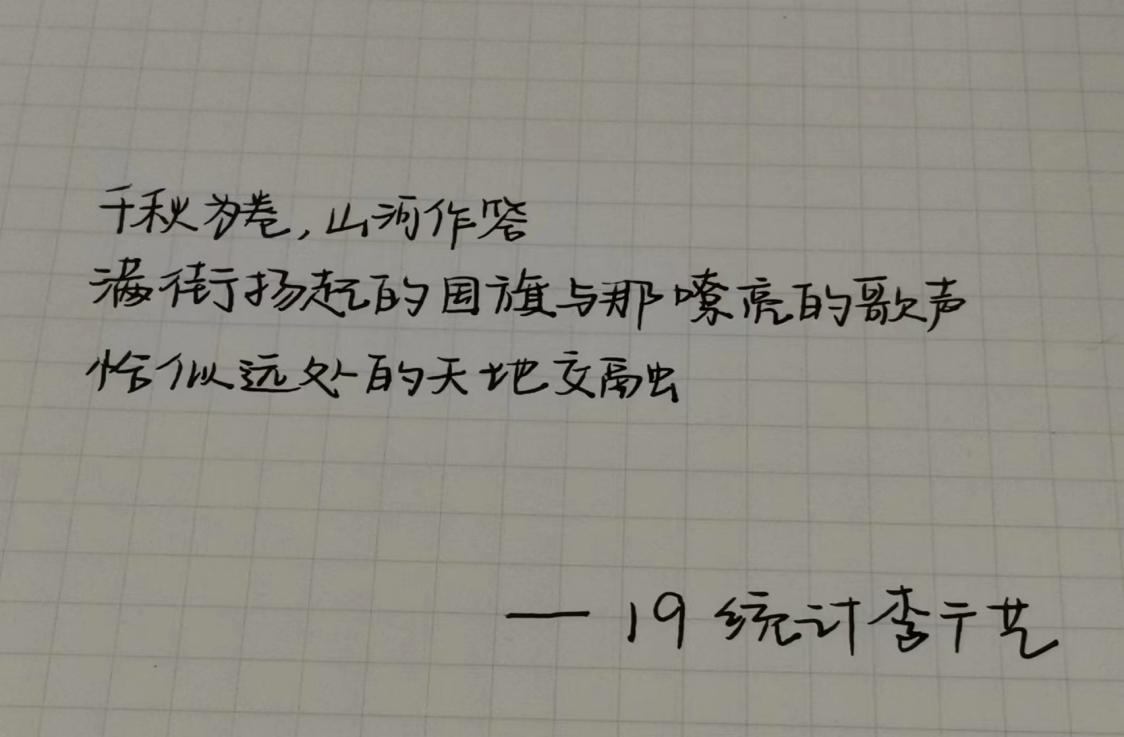 千秋为卷,山河作答
满街扬起的国旗与那嘹亮的歌声
恰似远处的天地交融
— 19 统计李于艺